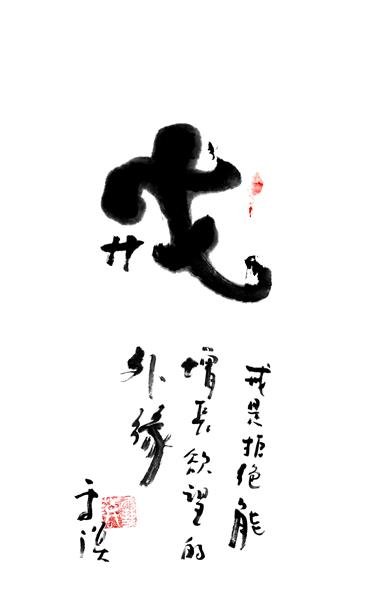 戒
戒是拒绝能
增長欲望的
外缘